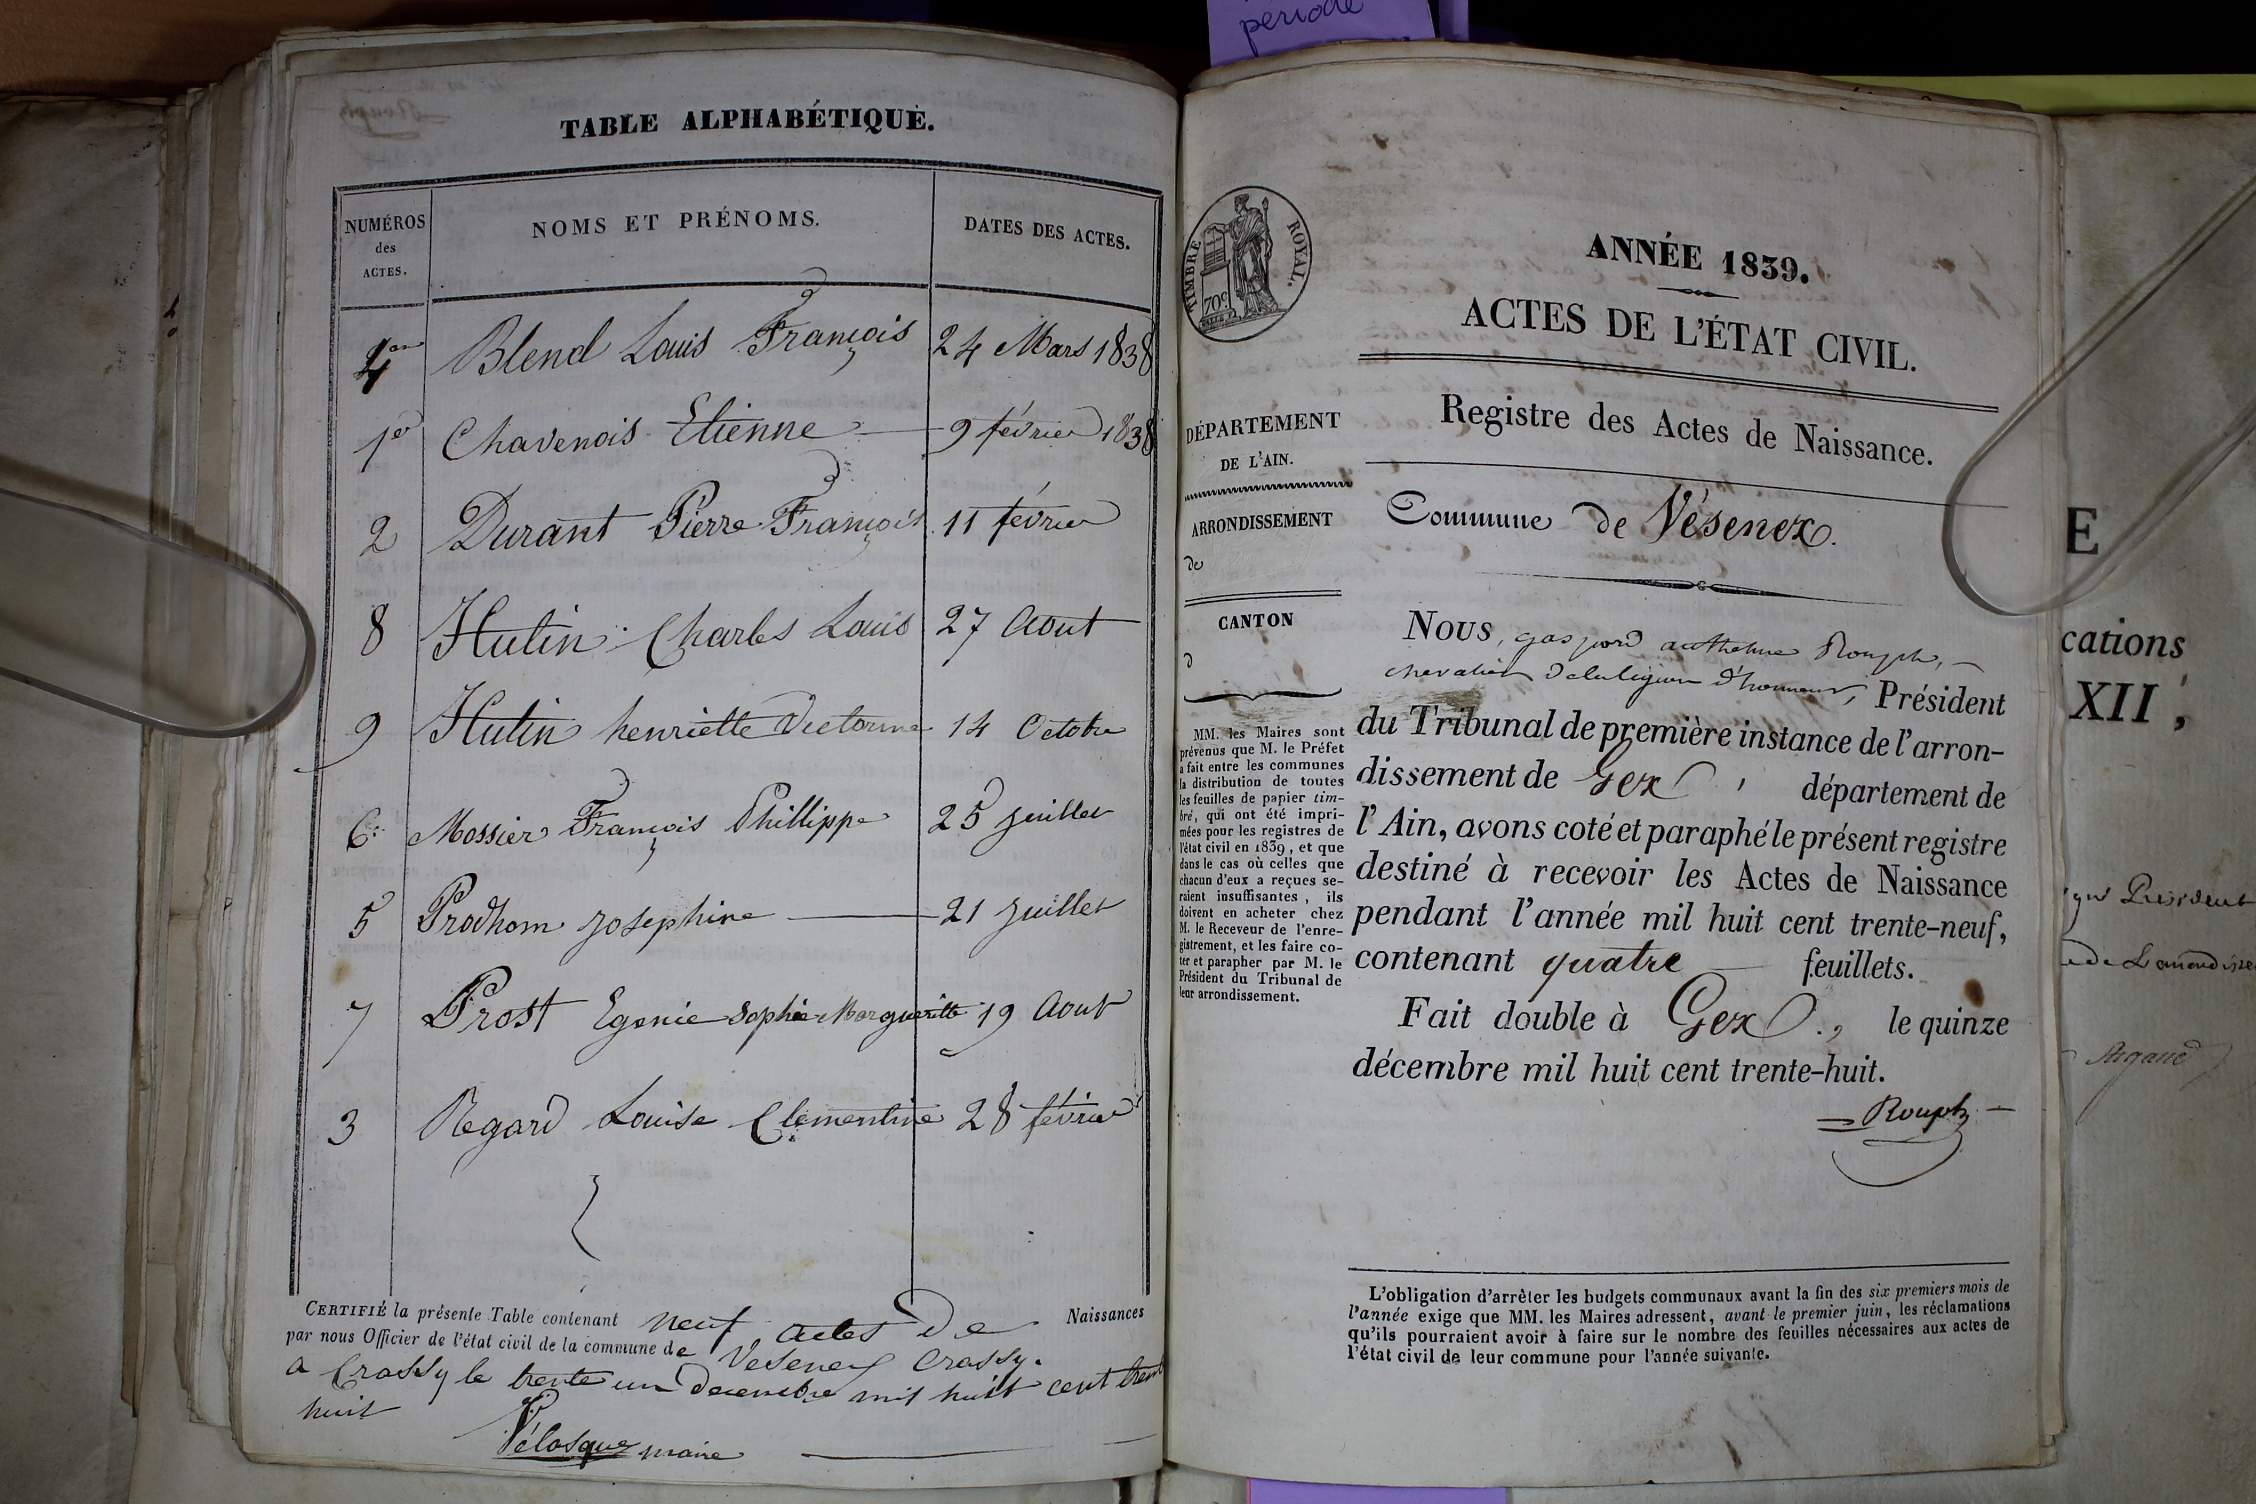 période
TABLE ALPHABÉTIQUE.
NUMÉROS
des
ACTES.
NOMS ET PRÉNOMS.
DATES DES ACTES.
4 Blend Louis François 24 Mars 1838
1er Chavenois Etienne 9 février 1838
2 Durant Pierre François 11 février
8 Hutin Charles Louis 27 Aout
9 Hutin henriette Victorine 14 Octobre
6 Mossier François Phillippe 25 juillet
5 Prodhom josephine 21 juillet
7 Prost Egenie Sophie Margueritte 19 Aout
3 Regard Louise Clementine 28 février
CERTIFIÉ la présente Table contenant neuf actes de Naissances
par nous Officier de l'état civil de la commune de Vesenex Crassy.
a Crassy le trente un decembre mil huit cent trent
huit
Pélasque maire
TIMBRE ROYAL.
70c
ANNÉE 1839.
ACTES DE L'ÉTAT CIVIL.
Registre des Actes de Naissance.
DÉPARTEMENT
DE L'AIN.
ARRONDISSEMENT
de
CANTON
d
MM. les Maires sont
prévenus que M. le Préfet
a fait entre les communes
la distribution de toutes
les feuilles de papier tim-
bré, qui ont été impri-
mées pour les registres de
l'état civil en 1839, et que
dans le cas où celles que
chacun d'eux a reçues se-
raient insuffisantes, ils
doivent en acheter chez
M. le Receveur de l'enre-
gistrement, et les faire co-
ter et parapher par M. le
Président du Tribunal de
leur arrondissement.
Commune de Vésenex.
Nous, gaspard anthelme Rouph,
chevalier de la légion d'honneur, Président
du Tribunal de première instance de l'arron-
dissement de Gex, département de
l'Ain, avons coté et paraphé le présent registre
destiné à recevoir les Actes de Naissance
pendant l'année mil huit cent trente-neuf,
contenant quatre feuillets.
Fait double à Gex, le quinze
décembre mil huit cent trente-huit.
Rouph
L'obligation d'arrêter les budgets communaux avant la fin des six premiers mois de
l'année exige que MM. les Maires adressent, avant le premier juin, les réclamations
qu'ils pourraient avoir à faire sur le nombre des feuilles nécessaires aux actes de
l'état civil de leur commune pour l'année suivante.
E
cations
XII,
Président